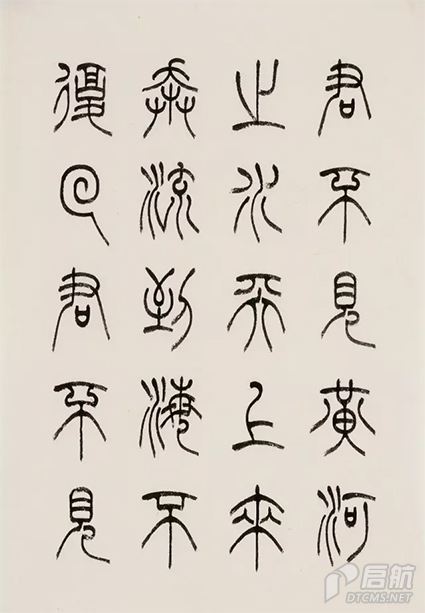 君不見黃河
之水天上來
奔流到海不
復回君不見
启航
DTCMS.NET